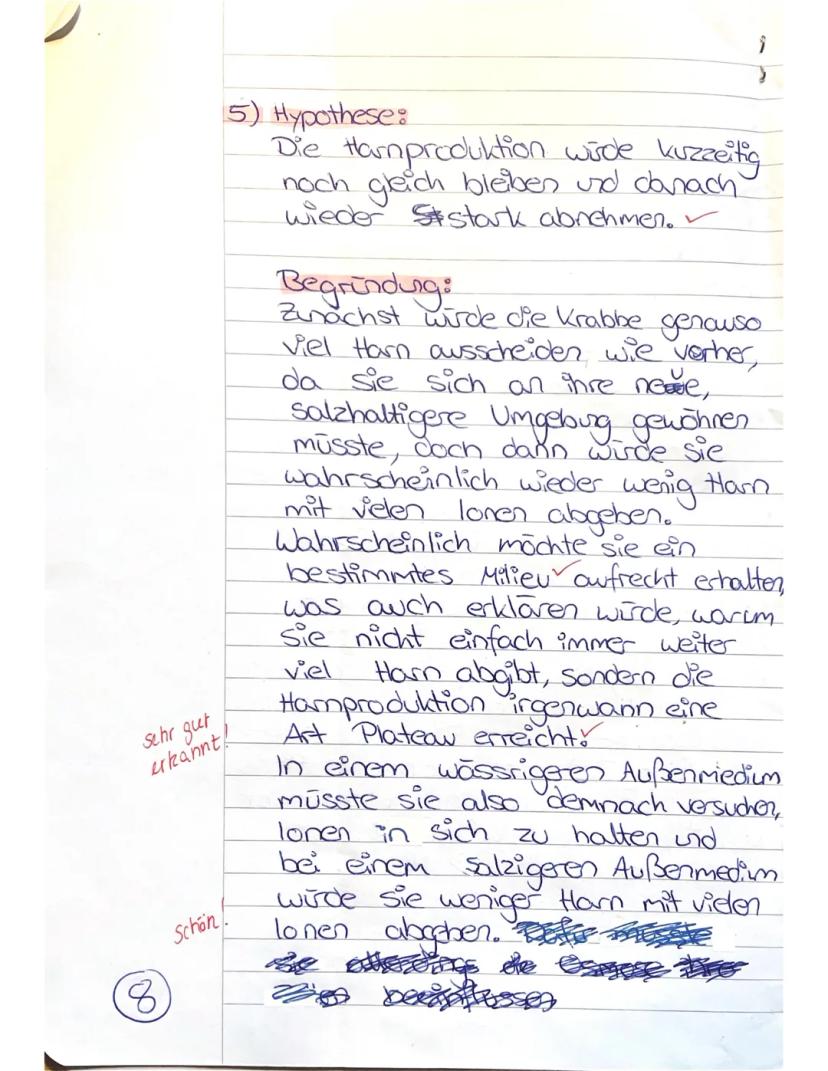 5) Hypothese:
Die Harnproduktion würde kurzzeitig
noch gleich bleiben und danach
wieder stark abnehmen. ✓
Begründung:
Zunächst würde die Krabbe genauso
viel Harn ausscheiden, wie vorher,
da sie sich an ihre neue,
salzhaltigere Umgebung gewöhnen
müsste, doch dann würde sie
wahrscheinlich wieder wenig Harn
mit vielen Ionen abgeben.
Wahrscheinlich möchte sie ein
bestimmtes Milieu ✓ aufrecht erhalten,
was auch erklären würde, warum
sie nicht einfach immer weiter
viel Harn abgibt, sondern die
Harnproduktion irgenwann eine
sehr gut
erkannt!
Art Plateau erreicht. ✓
In einem wässrigeren Außenmedium
müsste sie also demnach versuchen,
Ionen in sich zu halten und
bei einem salzigeren Außenmedium
würde sie weniger Harn mit vielen
schön!
Ionen abgeben.
8